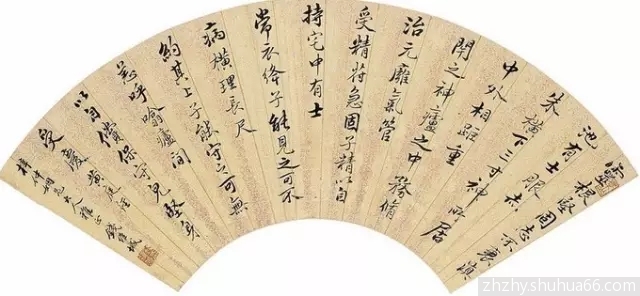 靈根堅固志不衰
池有士服赤朱
橫下三寸神所居
中外相距重
閉之神廬之中務脩
治元癰氣管
受精符急固子精以自
持宅中有士
常衣絳子能見之可不
病橫理長尺
約其上子能守之可無
恙呼噏廬間
以自償保守完堅身
受慶 黃庭
大人雅正
zhzhy.shuhua66.com